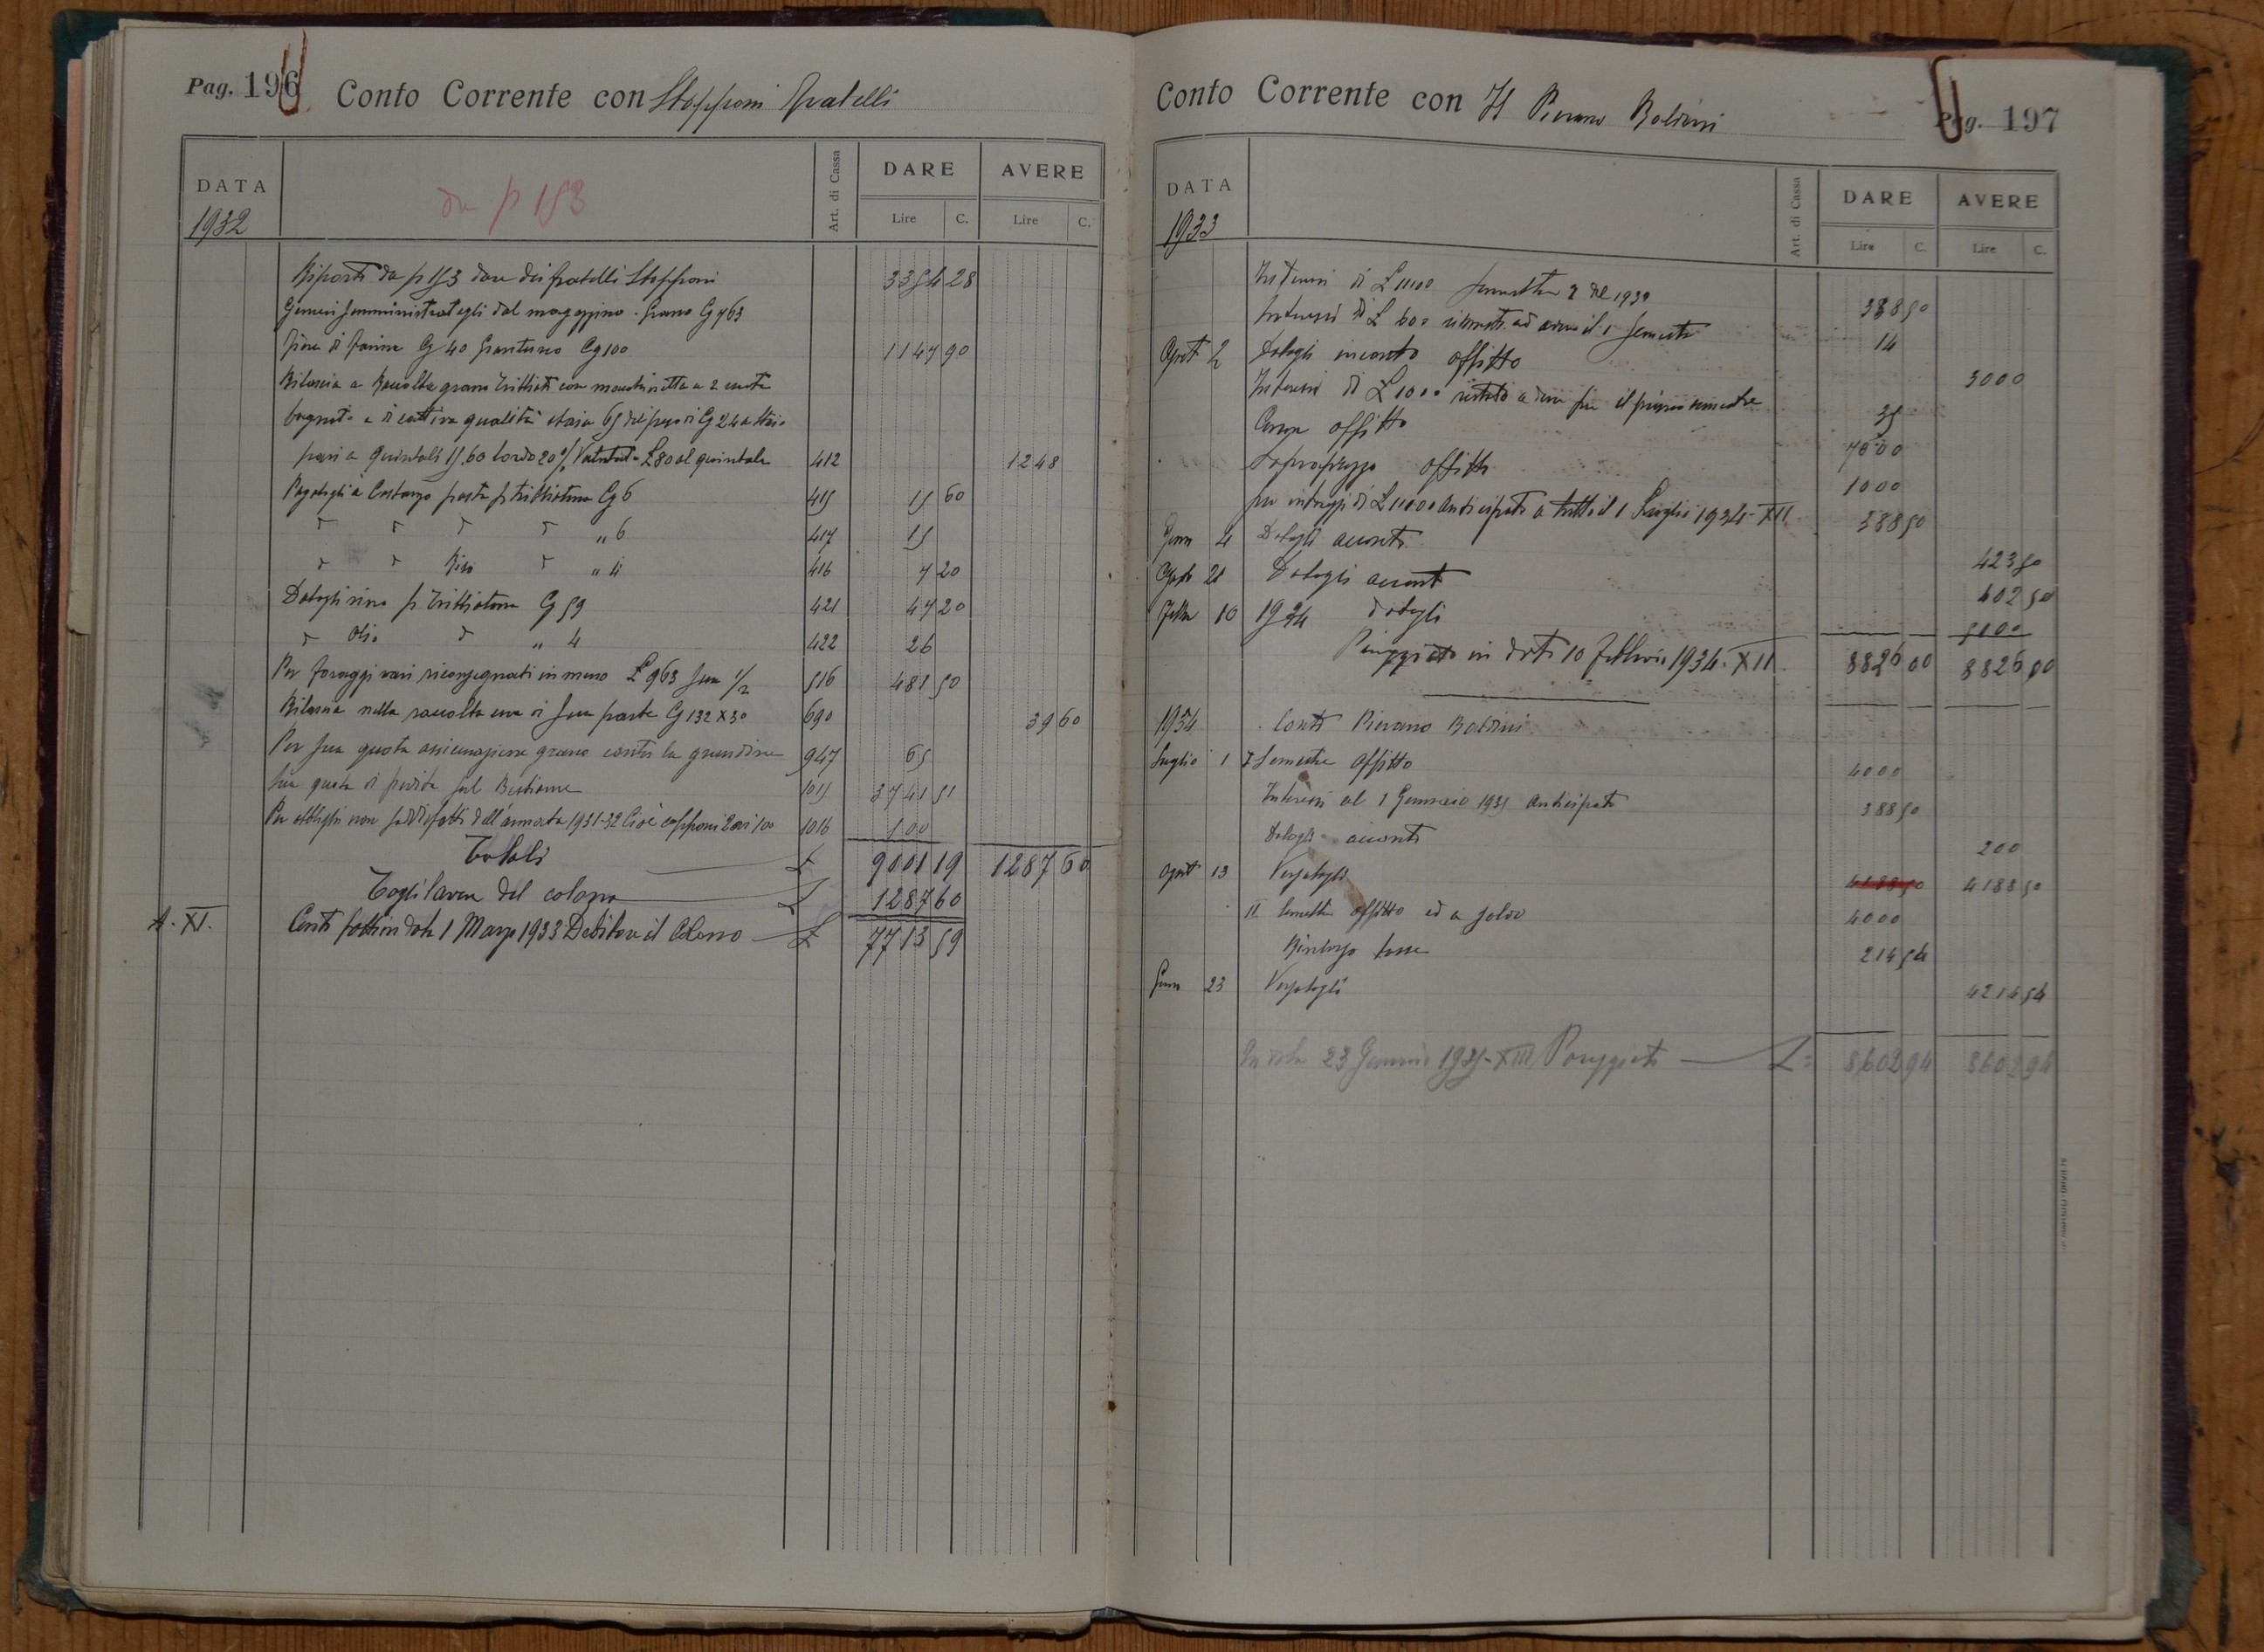 Pag. 196 Conto Corrente con Stopponi fratelli
DATA Art. di Cassa DARE AVERE
1932 da p 153 Lire C. Lire C.
Riporto da p 153 dare dei fratelli Stopponi 3354 28
Generi somministratogli dal magazzino. Grano Cg 763
fiore di farina Cg 40 Granturco Cg 100 1147 90
Rilascia a Raccolta grano
bagnato e di cattiva qualità staia 65 del peso di Cg 24 a staio
pari a Quintali 15.60 lordo 20% Valutato L 80 al quintale 412 1248
Pagatogli a Costanzo pasta p tribbiatura Cg 6 415 15 60
" " " " " 6 417 15
" " Riso " " 4 416 7 20
Datogli vino p tribbiatura Cg 59 421 47 20
" Olio " " 4 422 26
Per foraggi vari riconsegnati in meno L 963 sua 1/2 516 481 50
Rilascia nella raccolta uva di sua parte Cg 132 X 30 690 39 60
Per sua quota assicurazione grano contro la grandine 947 65
Sua quota di perdita sul Bestiame 1015 3741 51
Per obblighi non soddisfatti dell'annata 1931-32 Cioè capponi 2 ovi 100 1016 100
Totali L 9001 19 1287 60
Togli l'avere del colono L 1287 60
A. XI. Conti fatti in data 1 Marzo 1933 Debitore il Colono L 7713 59
Conto Corrente con Il Pievano Baldini Pag. 197
DATA Art. di Cassa DARE AVERE
1933 Lire C. Lire C.
Interessi di L 11100 semestre 2 del 1932 388 50
Interessi di L 600 rimasti ad avere il 1 semestre 14
Agost 2 Datogli in conto affitto 3000
Interessi di L 1000 restato a dare per il primo semestre 35
affitto 7000
Soprapprezzo affitto 1000
per interessi di L 11100 anticipato a tutto il 1 Luglio 1934-XII 388 50
Genn 4 Datogli acconto 423 50
Agosto 21 Datogli acconto 402 50
Febb 10 1934 datogli 5100
Pareggiato in data 10 Febbraio 1934-XII. 8826 00 8826 00
1934 Conto Pievano Baldini
Luglio 1 I Semestre Affitto 4000
Interessi al 1 Gennaio 1935 anticipato 388 50
Datogli acconto 200
Agost 13 Versatogli 4188 50 4188 50
II Semestre affitto ed a saldo 4000
Rimborso tasse 214 54
Genn 23 Versatogli 4214 54
In data 23 Gennaio 1935-XIII Pareggiato L= 8602 94 8602 94